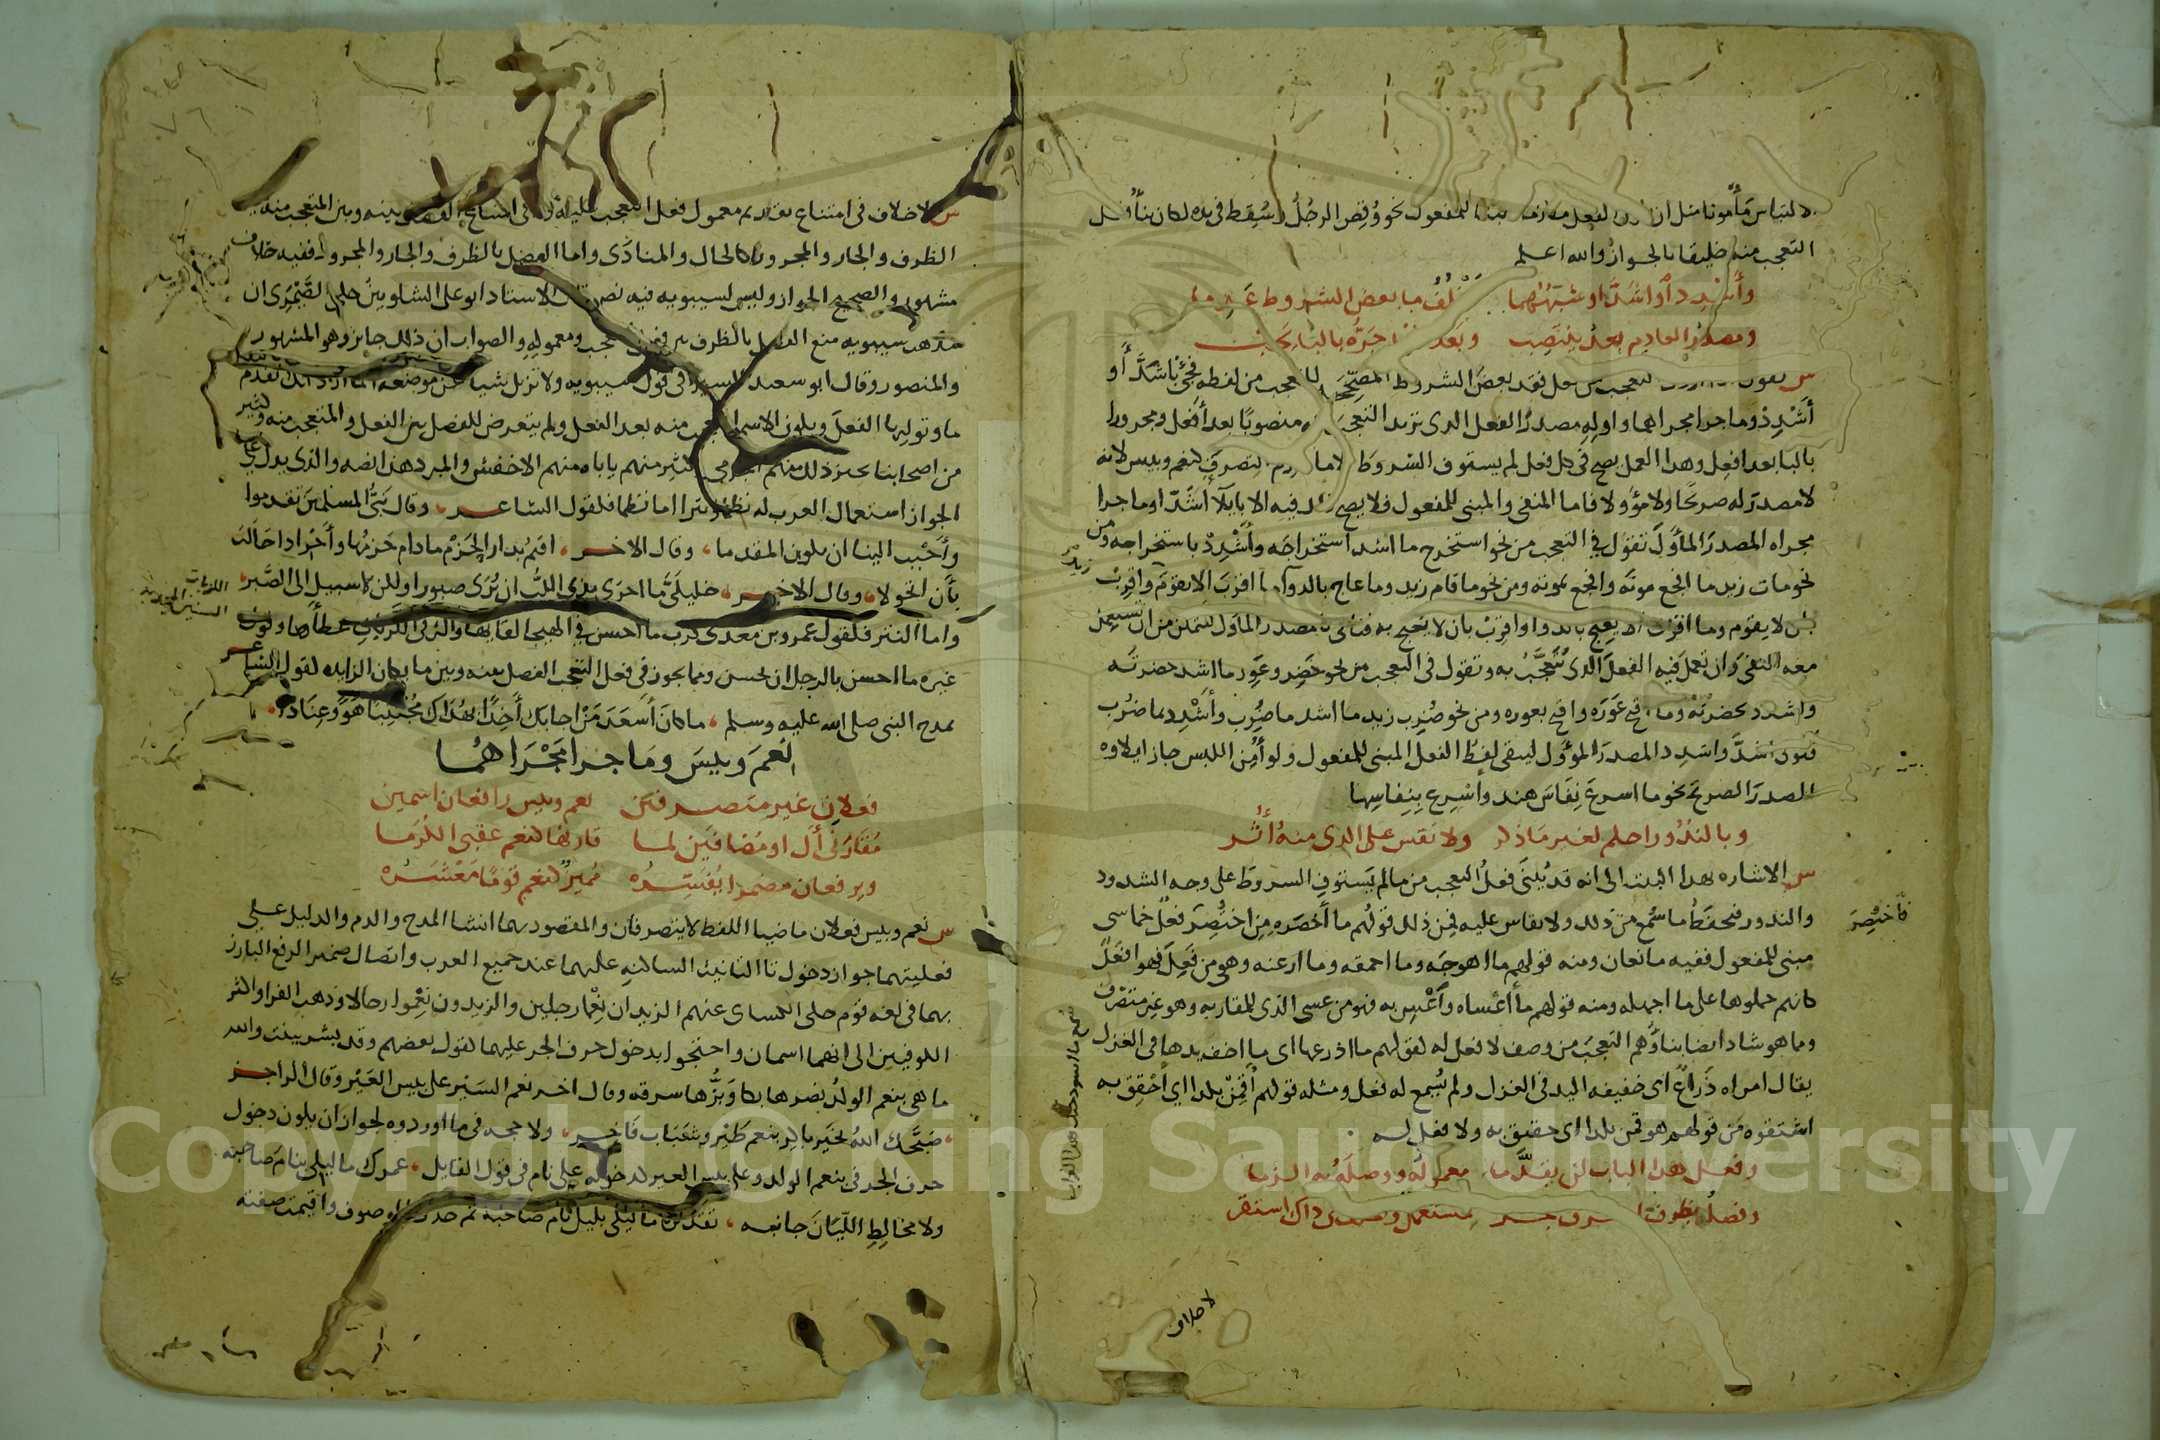 الالتباس مأمونا مثل ان يكون الفعل ملازما لبناء المفعول نحو وُقِصَ الرجلُ وسُقِط فى يده لكان بناء فعل
التعجب منه خليقا بالجواز والله اعلم
وأشدِد أو أشدّ او شبههما يخلُفُ ما بعض الشروط عَدِما
ومصدرُ العادِم بعدُ ينتصِب وبعد أفعل جَرُّه بالبا يَجب
س يقول اذا اردت التعجب من فعل فقد بعضَ الشروط المصحِّحة للتعجب من لفظه فجِئْ باشَدَّ أو
أَشْدِدْ وما جرا مجراهما واولِهِ مصدرُ الفعل الذى تريد التعجب منه منصوبًا بعد أفعل ومجرورا
بالبا بعد افعِل وهذا العمل يصح فى كل فعل لم يستوف الشروط الا ما عدم التصرف كنعم وبيس لانه
لا مصدرَ له صريحًا ولا مؤولا فاما المنفى والمبنى للمفعول فلا يصح ذلك فيه الا بايلآ أشَدّ او ما جرا
مجراه المصدرَ المأوّل تقول فى التعجب من نحو استخرج ما اشد استخراجَه وأشْدِدْ باستخراجه ومن
نحو مات زيد ما افجع موتَه وافجع بموته ومن نحو ما قام زيد وما عاج بالدوآ ما اقربَ الا يقومَ واقرِبْ
بان لا يقوم وما اقرب الا يعيج بالدوا واقرِبْ بان لا يعيج به فتاتى بالمصدر الماول لتتمكن من ان تستعمل
معه النفى وان تعمل فيه الفعلَ الذى تتعجَّبُ به وتقول فى التعجب من نحو خَضِر وعَوِر ما اشد خضرتَه
واشدد بخضرته وما اقبح عَوَرَه واقبح بعوره ومن نحو ضُرِب زيد ما اشد ما ضُرِب وأشدِد بما ضُرِب
فتولى اشدَّ واشدِد المصدرَ المؤوّل ليبقى لفظُ الفعل المبنى للمفعول ولو أُمِن اللبس جاز ايلاوه
المصدرَ الصريحَ نحو ما اسرعَ نِفاسَ هند وأسْرِع بِنِفاسِها
وبالنُدُور احكم لغير ما ذكر ولا تقس على الذى منه أُثِر
س الاشاره بهذا البيت الى انه قد يُبنَى فعلُ التعجب من ما لم يَستوفِ الشروط على وجه الشذوذ
والندور فيحفَظُ ما سُمِع من ذلك ولا يقاس عليه فمِن ذلك قولُهم ما أَخصَره مِن اختُصِرَ فعلٌ خماسى
فاختُصِرَ
مبنى للمفعول ففيه مانعان ومنه قولهم ما اهوجَه وما احمقه وما ارعنه وهو من فَعِلَ فهو افعَلُ
كانهم حملوها على ما اجهله ومنه قولهم ما أعْساه وأَعْسِ به فهو من عسى الذى للمقاربه وهو غير متصرف
ومما هو شاذ ايضا بناؤهم التعجبَ من وصف لا فعل له كقولهم ما اذرعها اى ما اخف يدها فى الغزل
يقال امراه ذَراعٌ اى خفيفه اليد فى الغزل ولم يُسمع له فعل ومثله قولهم أَقمِنْ بكذا اى أَحْقِق به
اشتقوه من قولهم هو قمن بكذا اى حقيق به ولا فعل له
وفعل هذا الباب لن يقدَّما معموله ووصلَه به الزما
وفصلُه بظرف او بحرف جر مستعمل والخلف فى ذاك استقر
لا خلاف
س لا خلاف فى امتناع تقديم معمول فعل التعجب عليه ولا فى امتناع الفصل بينه وبين المتعجب منه بغير
الظرف والجار والمجرور كالحال والمنادى واما الفصل بالظرف والجار والمجرور ففيه خلاف
مشهور والصحيح الجواز وليس لسيبويه فيه نص قال الاستاذ ابو على الشلوبينُ حكى الصَّيْمَرِى ان
مذهب سيبويه منع الفصل بالظرف بين فعل التعجب ومعموله والصواب ان ذلك جايز وهو المشهور
والمنصور وقال ابو سعيد السيرافى قول سيبويه ولا تزيل شيا عن موضعه انما اراد انك تقدم
ما وتوليها الفعلَ ويكون الاسم المتعجب منه بعد الفعل ولم يتعرض للفصل بين الفعل والمتعجب منه وكثير
من اصحابنا يجيز ذلك منهم الجرمى وكثير منهم ياباه منهم الاخفش والمبرد هذا نصه والذى يدل على
الجواز استعمال العرب له نظما ونثرا اما نظما فكقول الشاعر وقال نبىُّ المسلمينَ تقدموا
وأَحْبِب الينا ان يكون المقدما وقال الاخر اقيمُ بدار الحَزْم ما دام حَزمُها وأَحْرِ اذا حَالَت
بأن اتحولا وقال الاخر خليلَىَّ ما احرَى بذى اللُّبِّ ان يُرَى صبورا ولكن لا سبيل الى الصَّبر
واما النثر فكقول عمرو بن معدى كرب ما احسن فى الهيجا لقاءها واكثر فى اللزبات عطاءها وقول
غيره ما احسن بالرجل ان يحسن ومما يجوز فى فعل التعجب الفصل بينه وبين ما بكان الزايده كقول الشاعر
يمدح النبى صلى الله عليه وسلم ما كانَ أَسعَدَ مَنْ اجابك آخِذًا بهُدَاك مُجْتَنِبًا هَوًى وعِنَادَا
نعمَ وبيسَ ومَا جرا مَجْرَاهُما
فعلانِ غير متصرفين نعم وبيس رافعان اسمين
مُقَارِنَى أَل او مُضافَين لما قارنها كنعم عقبى الكُرَما
ويرفعان مضمرا يُفَسِّرُه مُميِزٌ كنعم قومًا مَعْشَرُه
س نعم وبيس فعلان ماضيا اللفظ لا يتصرفان والمقصود بهما انشا المدح والذم والدليل على
فعليتهما جواز دخول تا التانيث الساكنهِ عليهما عند جميع العرب واتصال ضمير الرفع البارز
بهما فى لغه قوم حكى الكساى عنهم الزيدان نِعْما رجلين والزيدون نِعْموا رجالا وذهب الفرا واكثر
الكوفيين الى انهما اسمان واحتجوا بدخول حرف الجر عليهما كقول بعضهم وقد بشر ببنت والله
ما هى بنعم الولدُ نصرها بكا وبَرُّها سرقه وقال اخر نعم السَيْر على بيس العَيْر وقال الراجز
صَبَّحك اللهُ بخَيرٍ باكِرِ بنعم طَيْر وشَبَابٍ فَاخِرِ ولا حجه فى ما اوردوه لجواز ان يكون دخول
حرف الجر فى بنعم الولد وعلى بيس العير كدخوله على نام فى قول القايل عمرك ما ليلى بنامَ صاحبه
ولا مخالِطِ اللَّيَانِ جانبه تقديره ما ليلى بليل نام صاحبه ثم حذف الموصوف واقيمت صفته